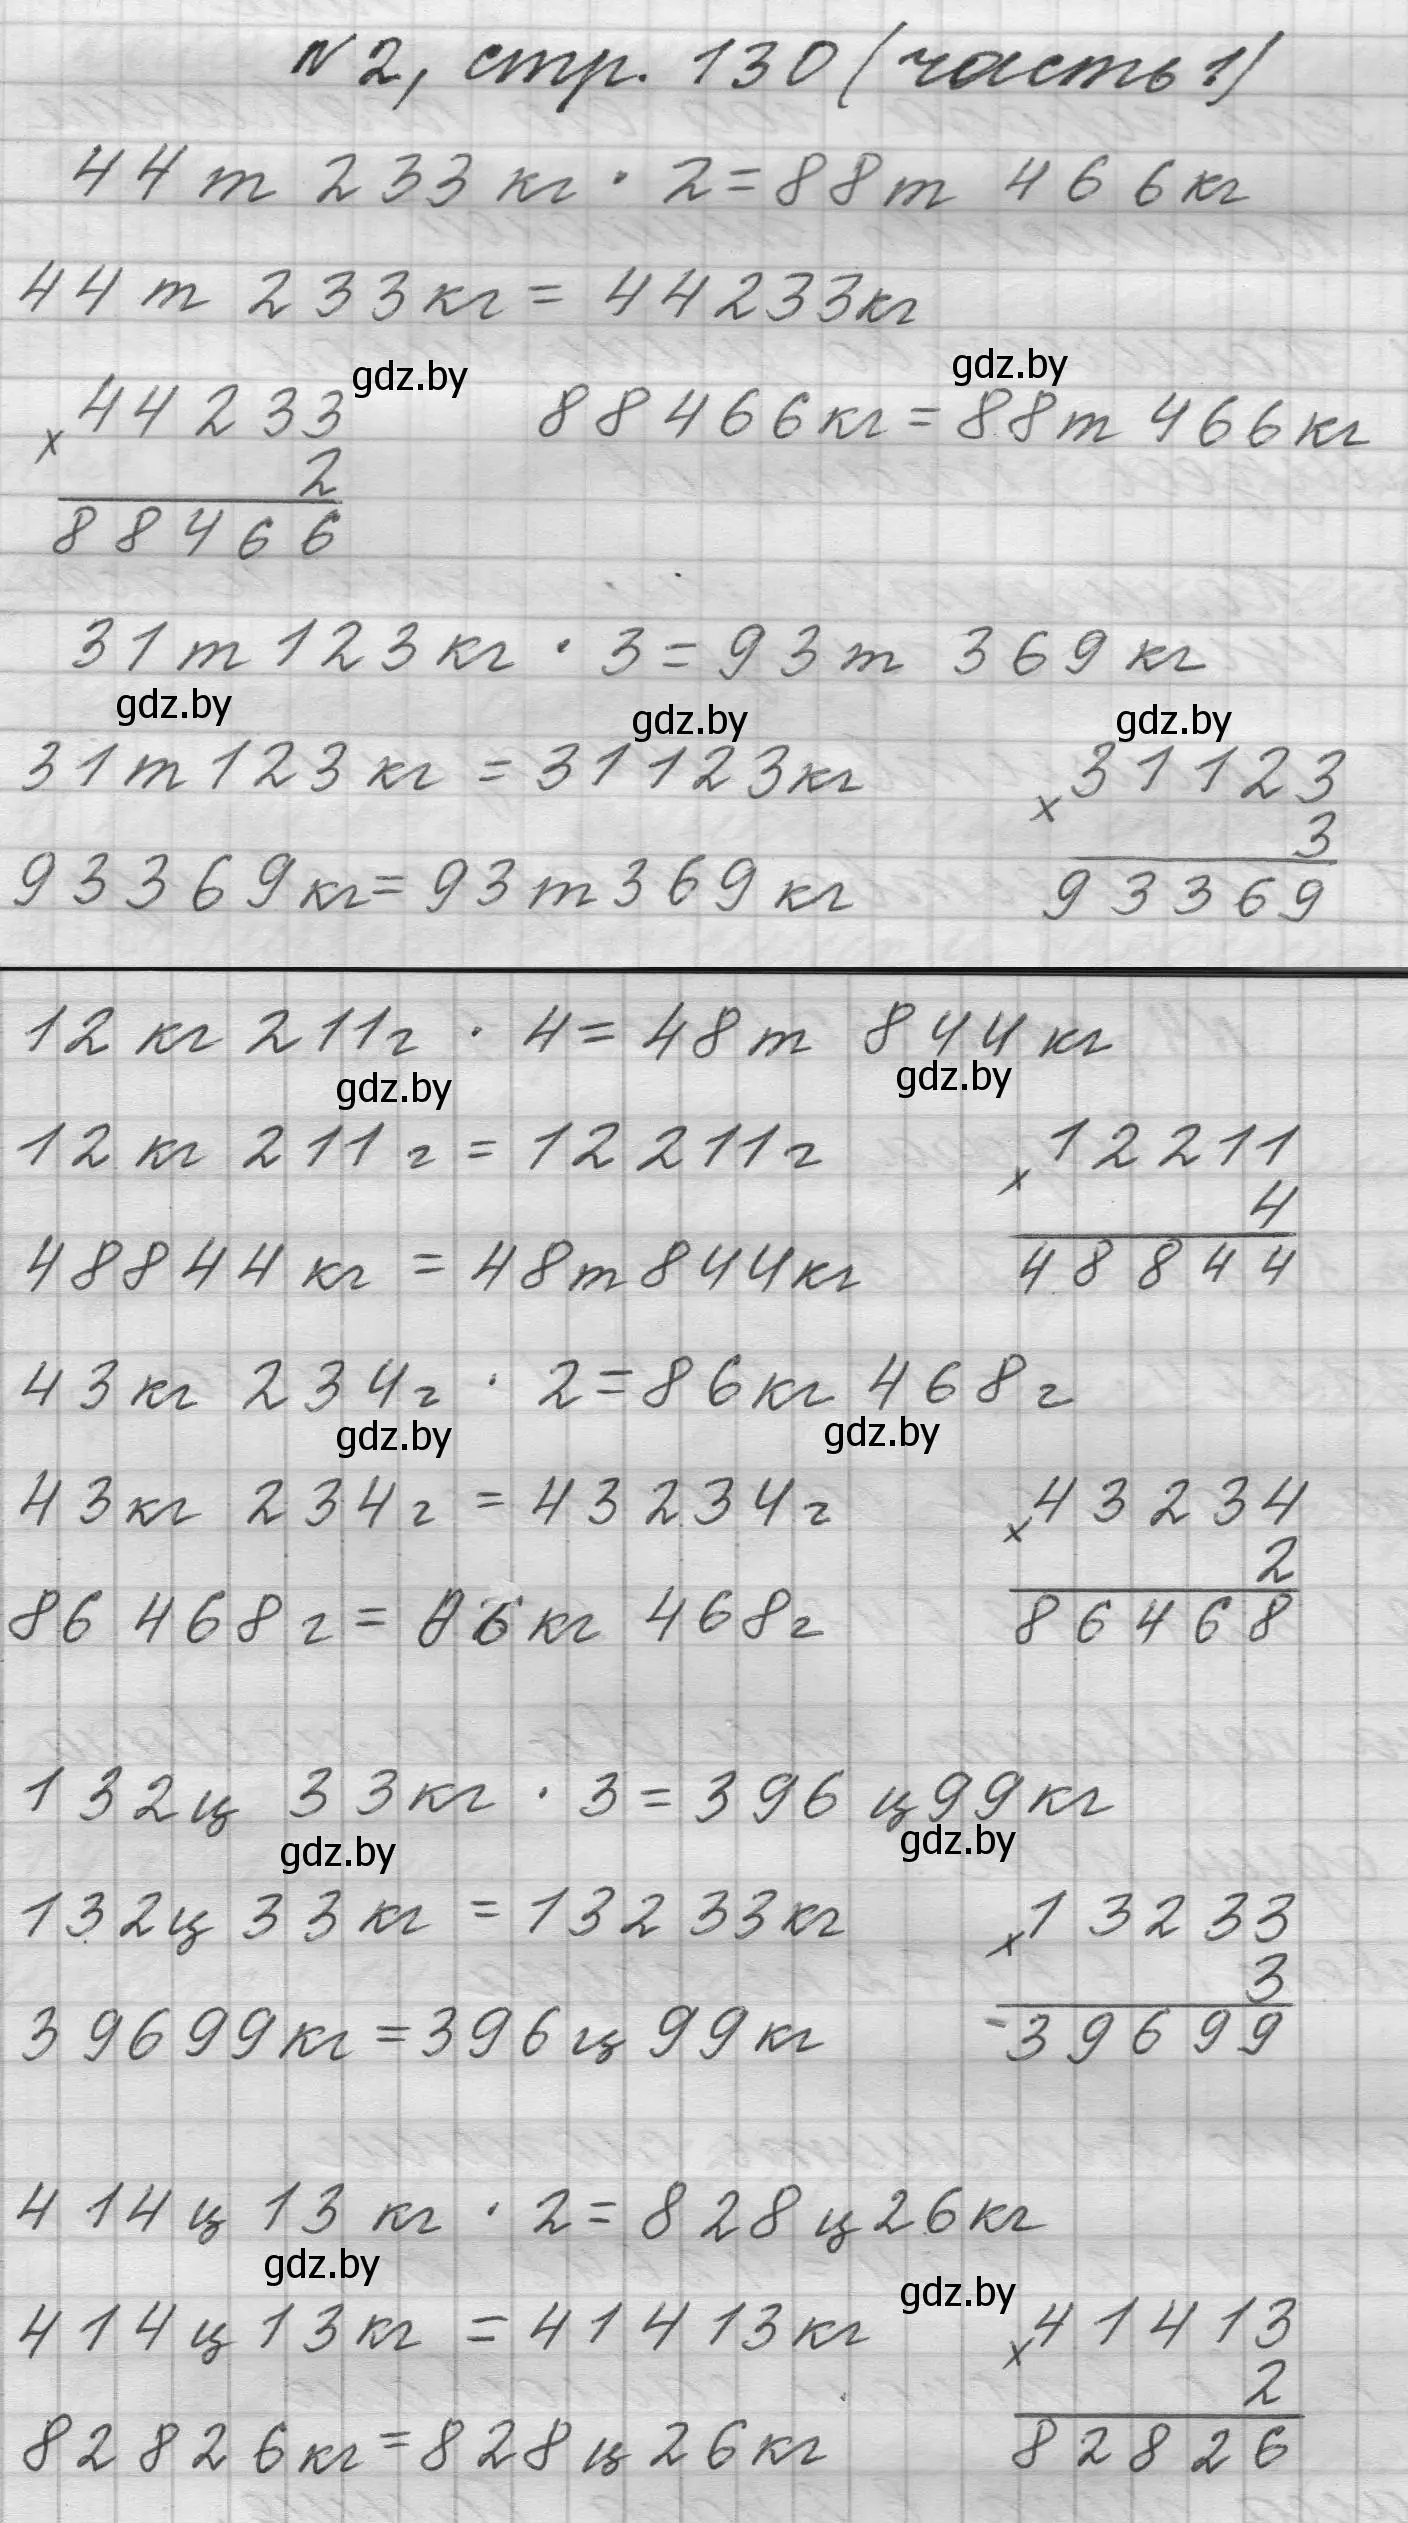 №2, стр. 130 (часть 1)
44 т 233 кг · 2 = 88 т 466 кг
44 т 233 кг = 44233 кг
gdz.by gdz.by
× 44233 88466 кг = 88 т 466 кг
2
88466
31 т 123 кг · 3 = 93 т 369 кг
gdz.by gdz.by gdz.by
31 т 123 кг = 31123 кг × 31123
3
93369 кг = 93 т 369 кг 93369
12 кг 211 г · 4 = 48 т 844 кг
gdz.by gdz.by
12 кг 211 г = 12211 г × 12211
4
48844 кг = 48 т 844 кг 48844
43 кг 234 г · 2 = 86 кг 468 г
gdz.by gdz.by
43 кг 234 г = 43234 г × 43234
2
86468 г = 86 кг 468 г 86468
132 ц 33 кг · 3 = 396 ц 99 кг
gdz.by gdz.by
132 ц 33 кг = 13233 кг × 13233
3
39699 кг = 396 ц 99 кг 39699
414 ц 13 кг · 2 = 828 ц 26 кг
gdz.by gdz.by
414 ц 13 кг = 41413 кг × 41413
2
82826 кг = 828 ц 26 кг 82826